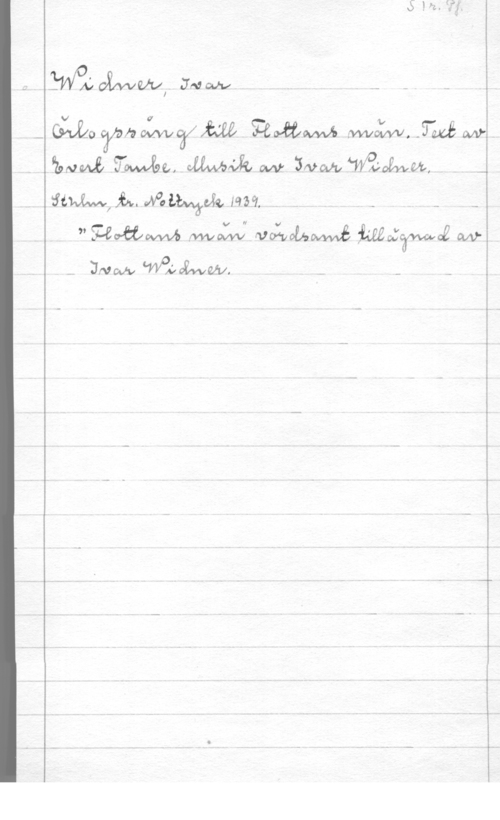 Widner, Ivar
Örlogssång till Flottans män. Text av
Evert Taube. Musik av Ivar Widner.
Sthlm, tr. Nottryck 1939.
"Flottans män" vördsamt tillägnad av
Ivar Widner.